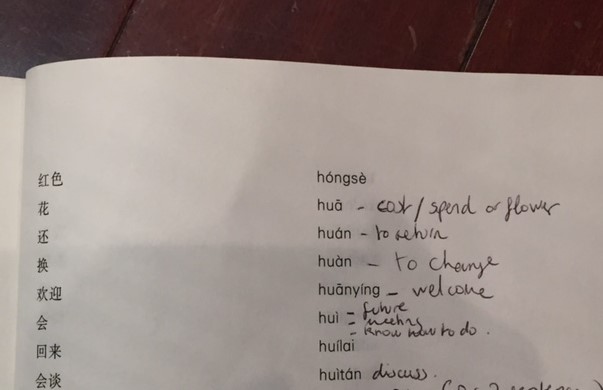 红色 hóngsè
花 huā - cost / spend or flower
还 huán - to return
换 huàn - to change
欢迎 huānyíng - welcome
会 huì - future
- meeting
- know how to do.
回来 huílai
会谈 huìtán discuss.